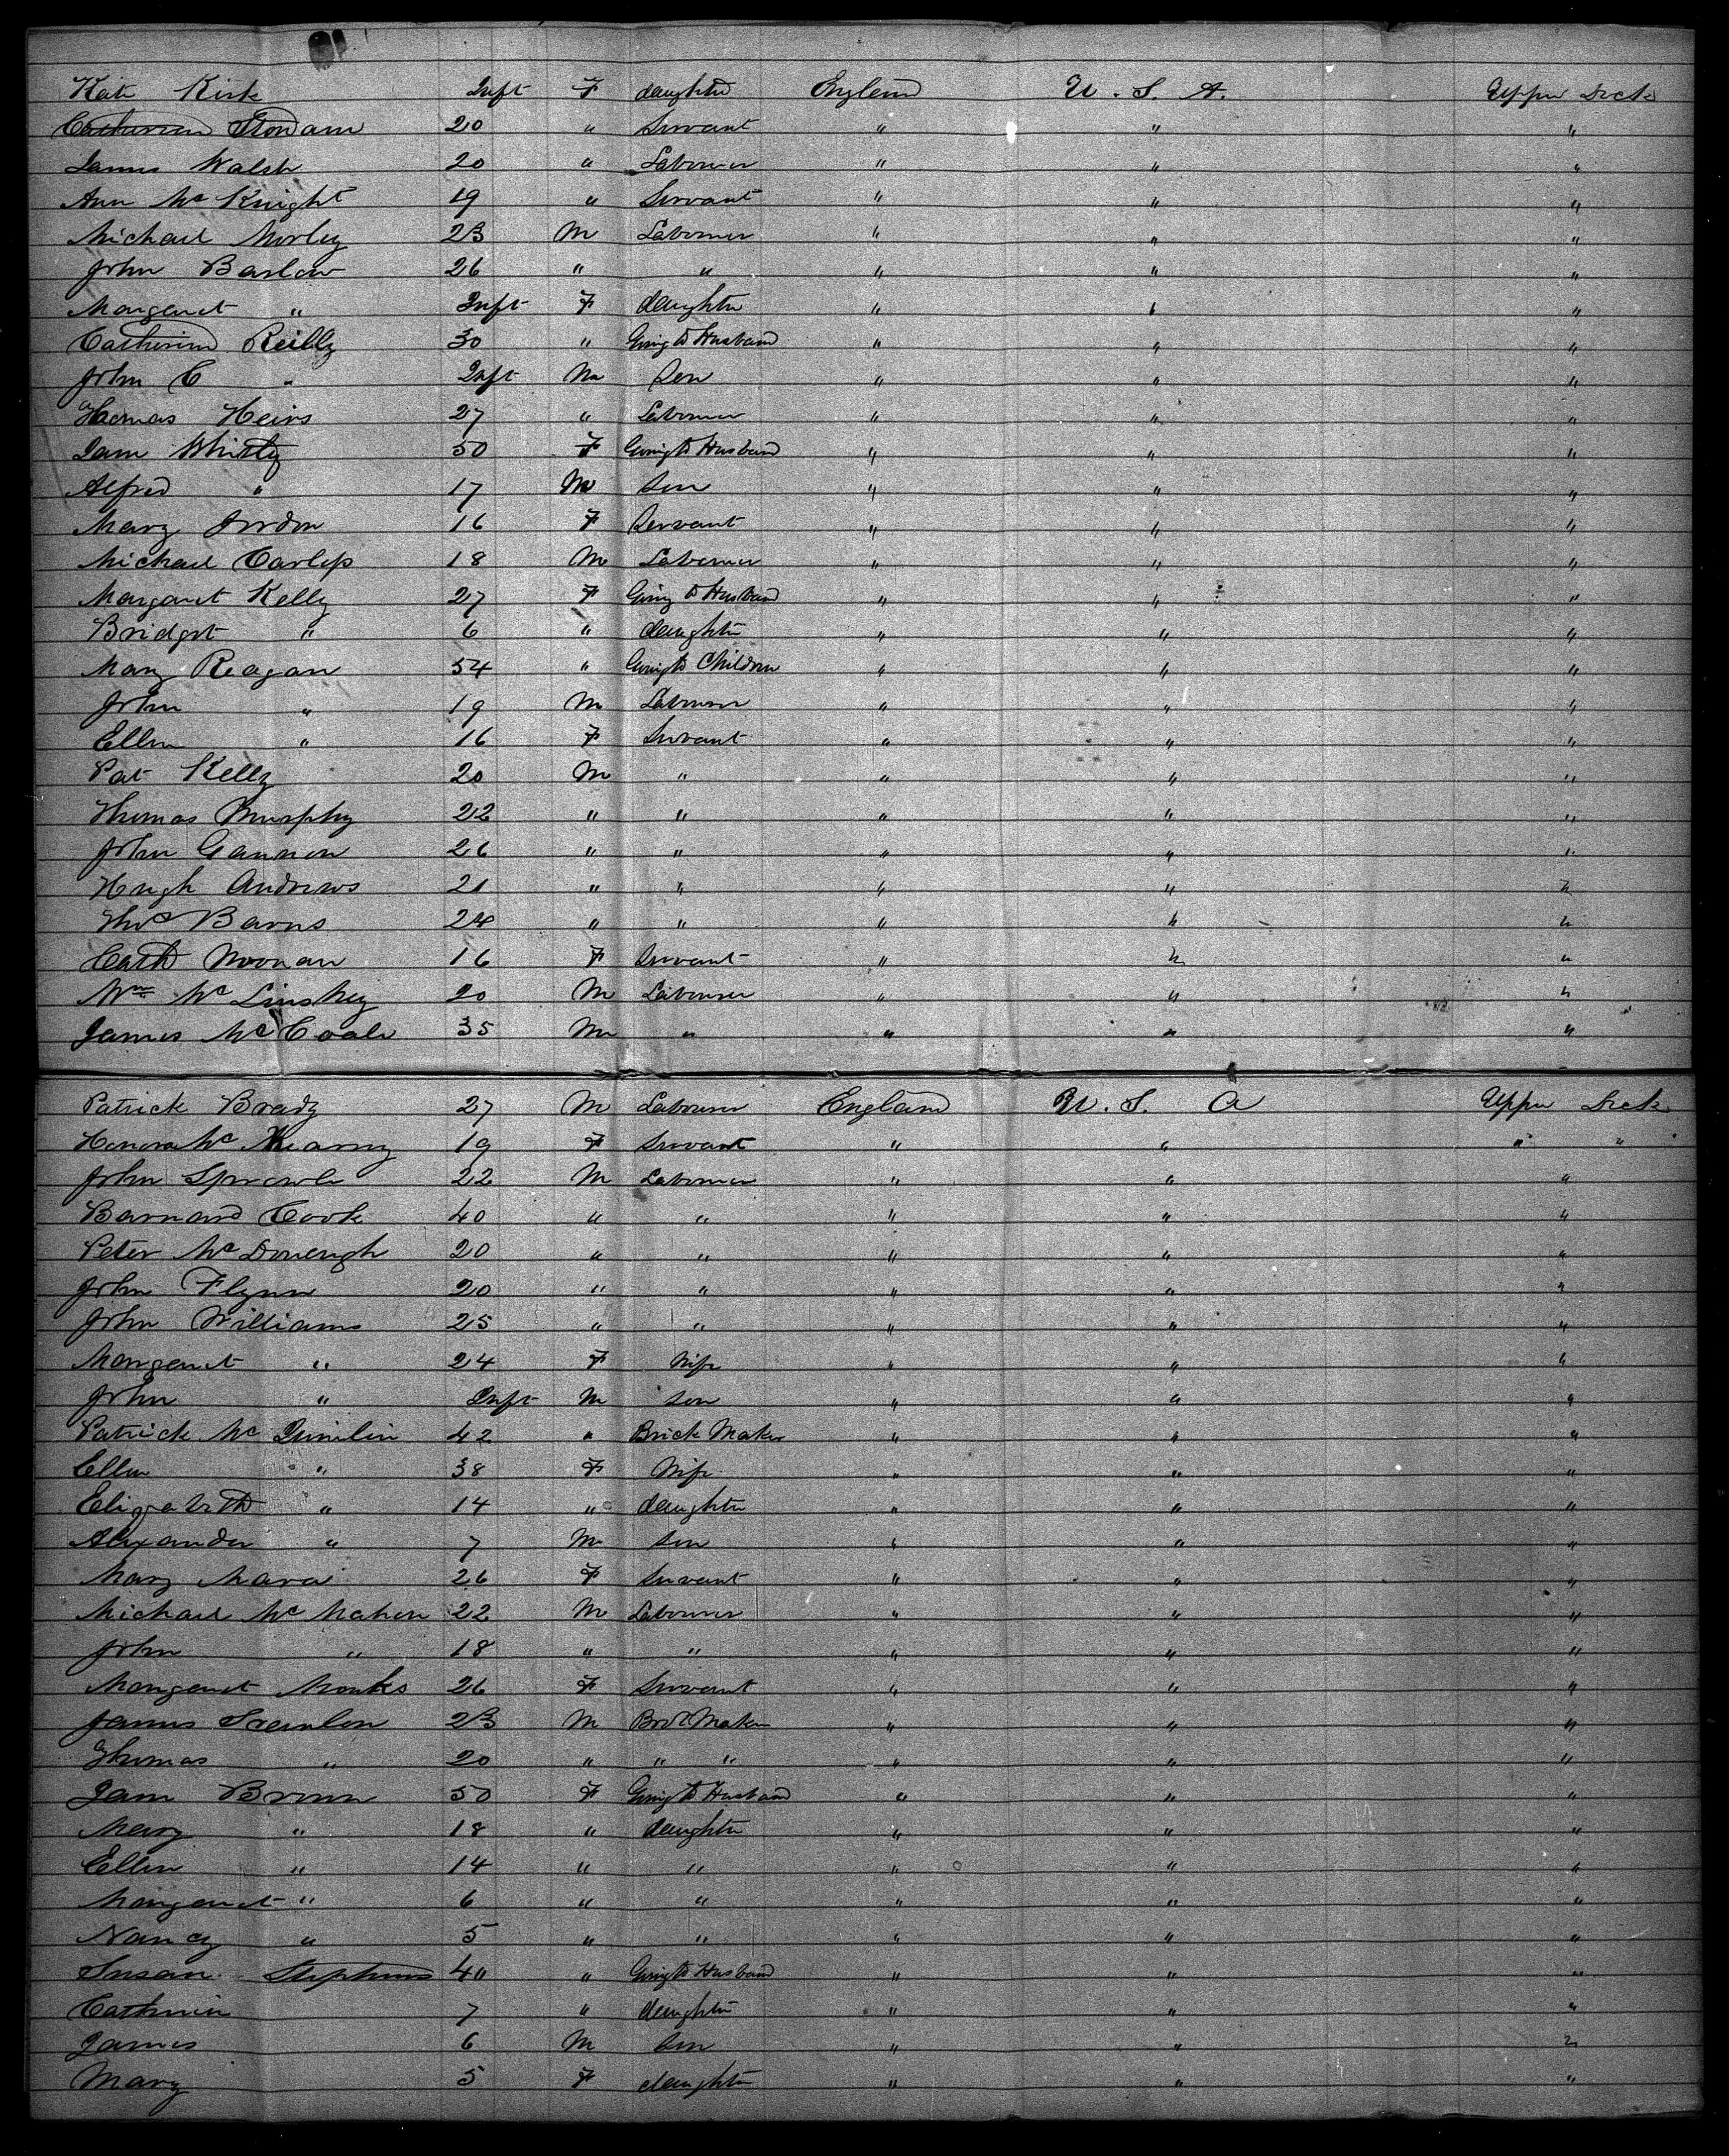 Kate Kirk Inft F daughter England U. S. A. Upper Deck
Catherine Stonam 20 " Servant " " "
James Walsh 20 " Labourer " " "
Ann Mc Knight 19 " Servant " " "
Michael Morley 23 M Labourer " " "
John Barlow 26 " " " " "
Margaret " Inft F daughter " " "
Catherine Reilly 30 " Going to Husband " " "
John C " Inft M Son " " "
Thomas Heirs 27 " Labourer " " "
Jane Whitty 50 F Going to Husband " " "
Alfred " 17 M Son " " "
Mary Jordon 16 F Servant " " "
Michael Carlep 18 M Labourer " " "
Margaret Kelly 27 F Going to Husband " " "
Bridget " 6 " daughter " " "
Mary Reagan 54 " Going to Children " " "
John " 19 M Labourer " " "
Ellen " 16 F Servant " " "
Pat Kelly 20 M " " " "
Thomas Murphy 22 " " " " "
John Gannon 26 " " " " "
Hugh Andrews 21 " " " " "
Thos Barns 24 " " " " "
Cath Noonan 16 F Servant " " "
Wm Mc Linskey 20 M Labourer " " "
James Mc Coale 35 M " " " "
Patrick Brady 27 M Labourer England U. S. A Upper Deck
Honora Mc Kearny 19 F Servant " " " "
John Sprowle 22 M Labourer " " "
Barnard Cook 40 " " " " "
Peter Mc Donough 20 " " " " "
John Flynn 20 " " " " "
John Williams 25 " " " " "
Margaret " 24 F Wife " " "
John " Inft M Son " " "
Patrick Mc Quinlin 42 " Brick Maker " " "
Ellen " 38 F Wife " " "
Elizabeth " 14 " daughter " " "
Alexander " 7 M Son " " "
Mary Mara 26 F Servant " " "
Michael Mc Mahon 22 M Labourer " " "
John " 18 " " " " "
Margaret Monks 26 F Servant " " "
James Scanlon 23 M Maker " " "
Thomas " 20 " " " " " "
Jane Brown 50 F Going to Husband " " "
Mary " 18 " daughter " " "
Ellen " 14 " " " " "
Margaret " 6 " " " " "
Nancy " 5 " " " " "
Susan Stephens 40 " Going to Husband " " "
Catherine 7 " daughter " " "
James 6 M Son " " "
Mary 5 F daughter " " "